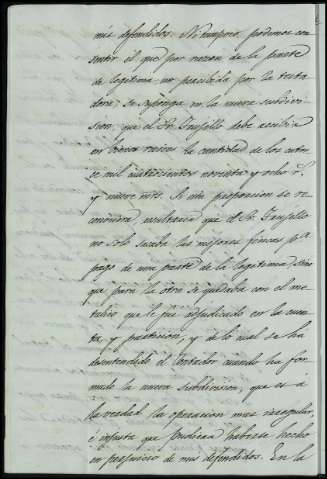 mis defendidos. Ni tampoco podemos con
sentir el que por razon de la parte
de legitima no percibida por la testa
dora, se suponga en la nueva subdivi
sion, que el Sr. Trujillo debe recibir
en bienes raices la cantidad de los cator
ce mil cuatrocientos noventa y ocho r.s
y nueve mrs. Si esta proporcion se re
conociera, resultaria que el Sr. Trujillo
no solo sacaba las mejores fincas p.a
pago de una parte de la legitima, sino
que para la otra se quedaba con el me
talico que le fue adjudicado en la cuen
ta y particion, y de lo cual se ha
desentendido el Contador cuando ha for
mado la nueva subdivision, que es a
la verdad la operacion mas irregular,
é injusta que pudiera haberse hecho
en perjuicio de mis defendidos. En la